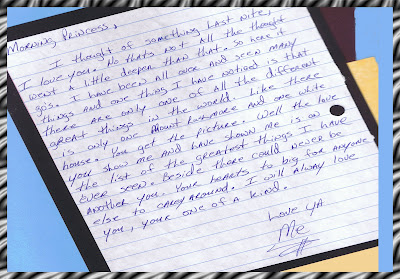 Morning, Princess,
I thought of something last nite,
I love you. No thats not all the thought
went a little deeper than that. So here it
go's. I have been all over and seen many
things and one thing I have noticed is that
there are only one of all the different
great things in the world. Like there
is only one Mount Rushmore and one white
house. You get the picture. Well the love
you show me and have shown me is on
the list of the greatest things I have
ever seen. Beside there could never be
another you. Your hearts to big for anyone
else to carey around. I will alway love
you, your one of a kind.
Love Ya
Me